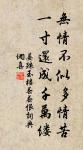 無情不似多情苦
一寸還成千萬縷
晏殊玉樓春春恨詞典
偶喜